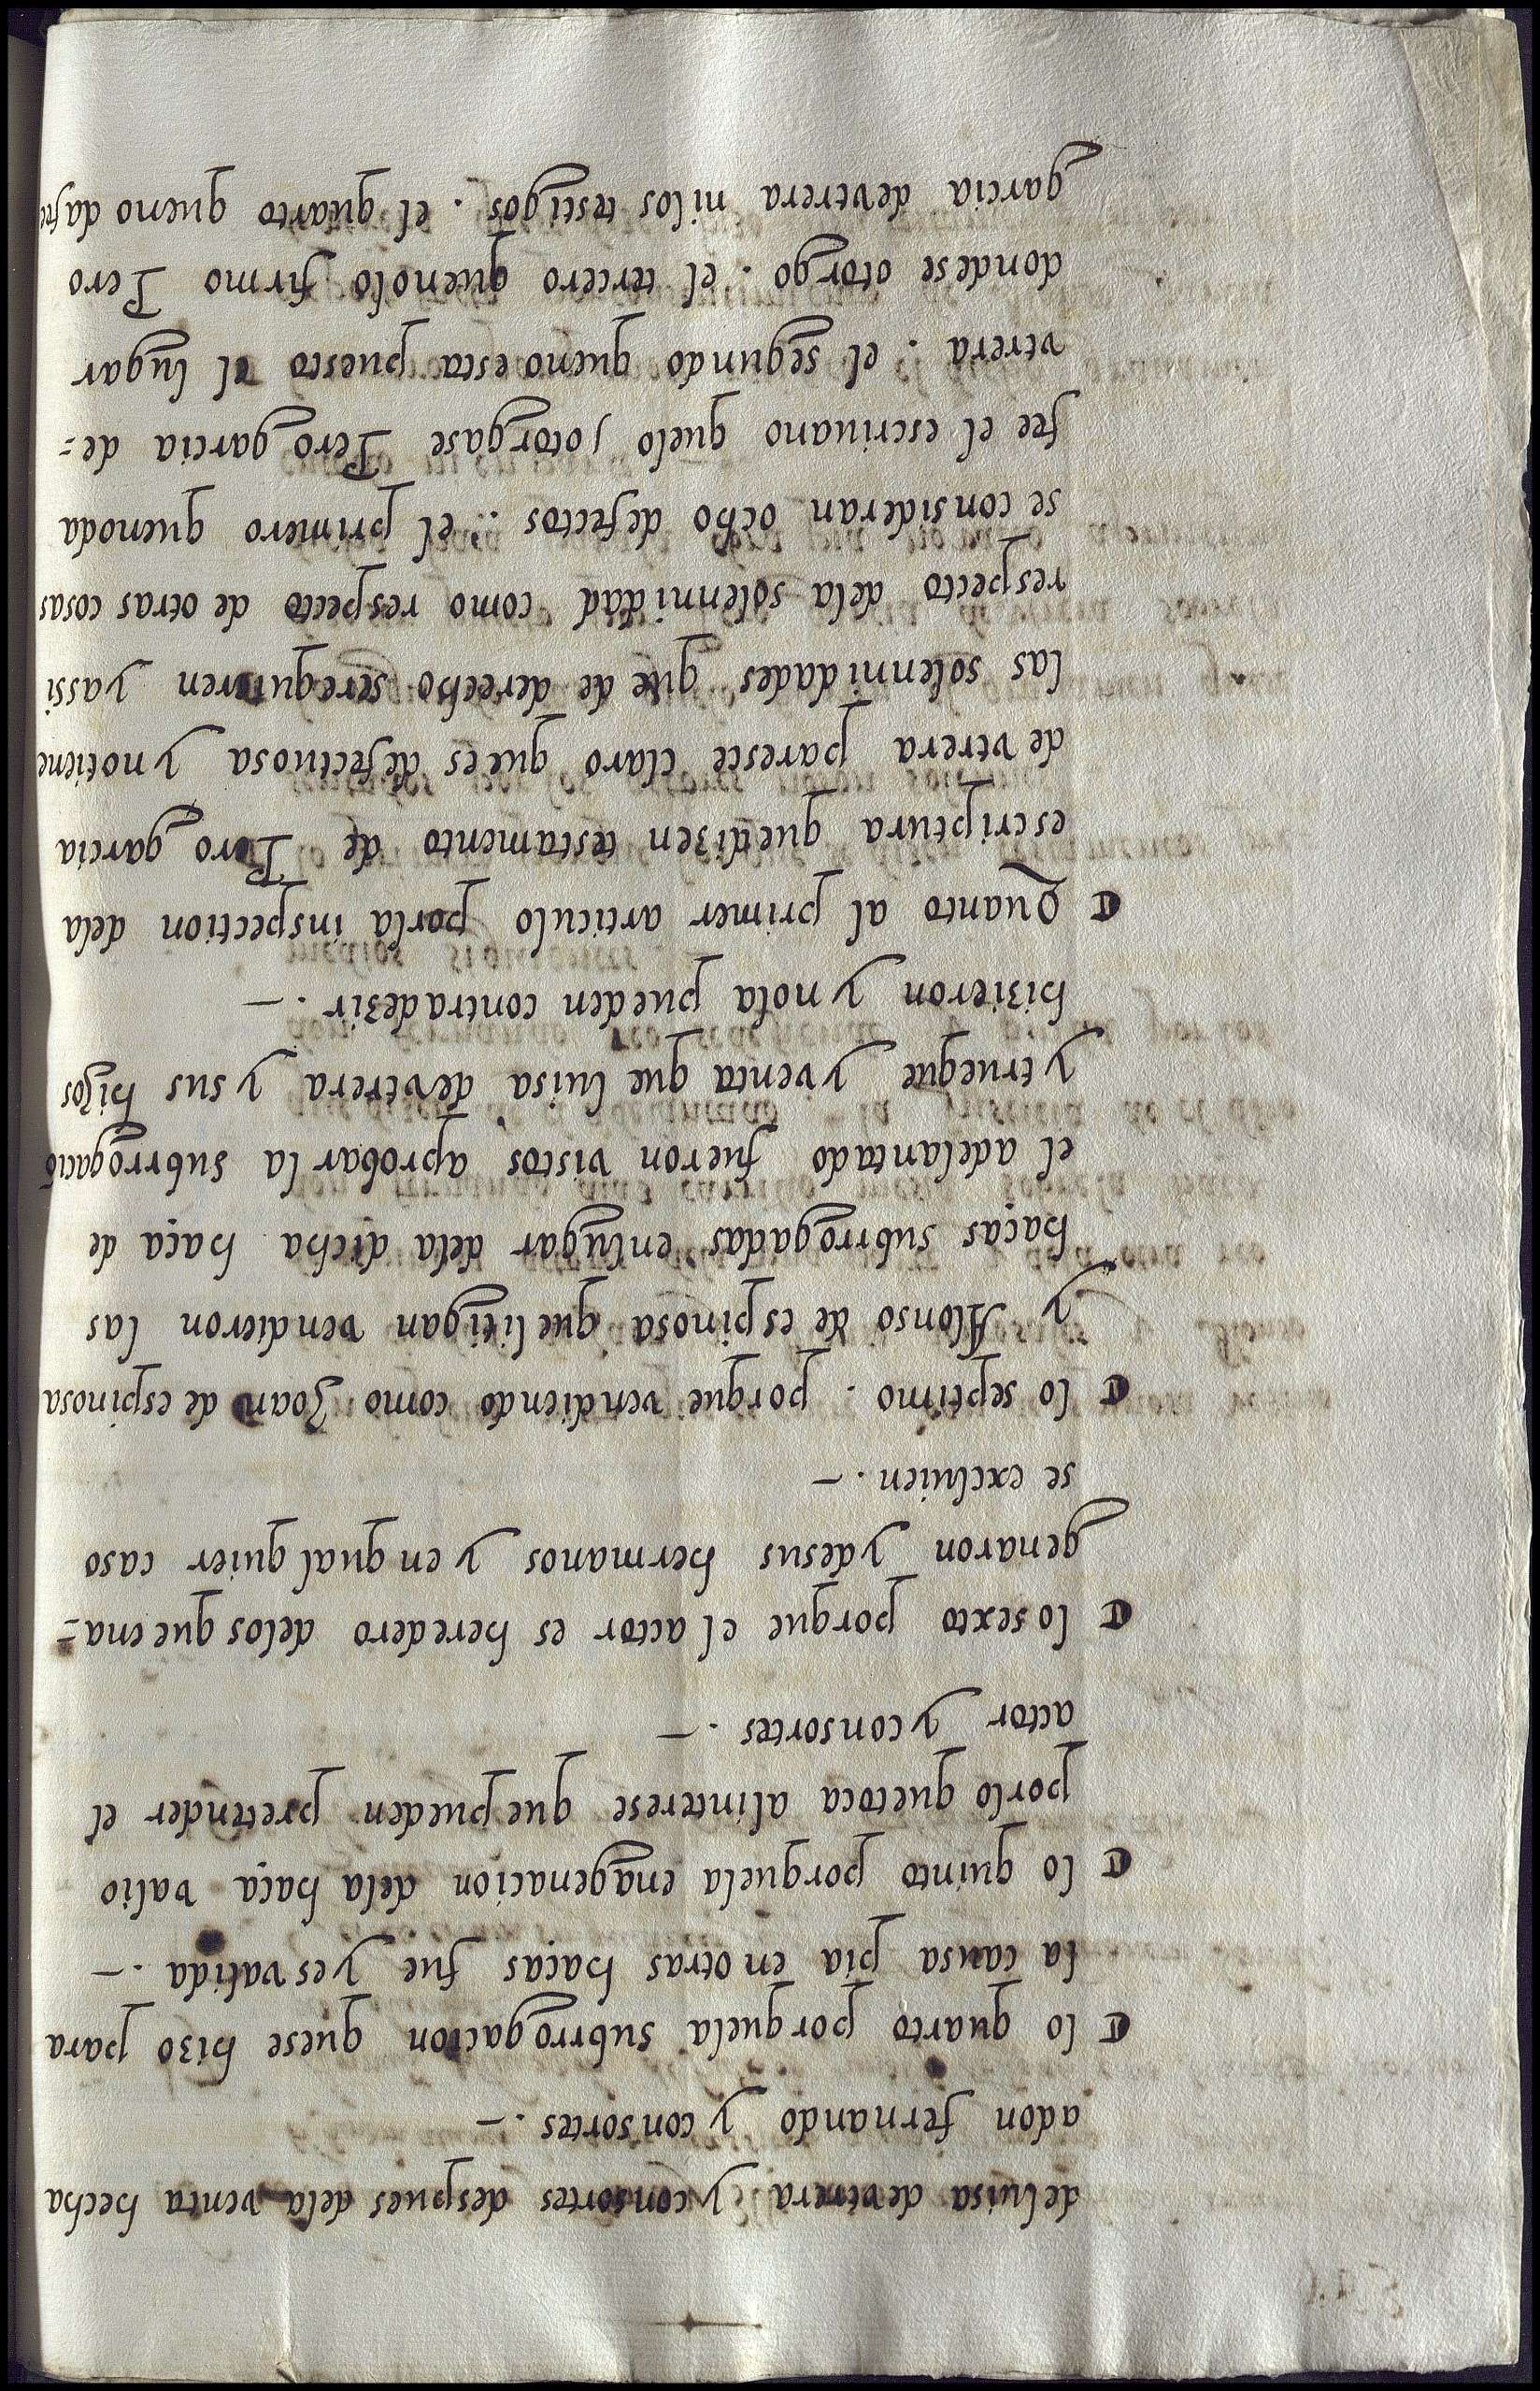 de luisa de vtrera y consortes despues dela venta hecha
a don fernando y consortes . –
lo quarto porquela subrrogacion quese hizo para
la causa pia en otras haças fue y es valida . –
lo quinto porquela enagenacion dela haça valio
porlo quetoca alinterese que pueden pretender el
actor y consortes . –
lo sexto porque el actor es heredero delos que ena-
genaron y desus hermanos y en qual quier caso
se excluien . –
lo septimo . porque vendiendo como Joan de espinosa
y Alonso de espinosa que litigan vendieron las
haças subrrogadas enlugar dela dicha haça de
el adelantado fueron vistos aprobar la subrrogació
y trueque y venta que luisa de vtrera y sus hijos
hizieron y nola pueden contradezir . –
Quanto al primer articulo porla inspection dela
escriptura quedizen testamento de Pero garcia
de vtrera paresce claro que es defectuosa y notiene
las solennidades que de derecho serequieren y assi
respecto dela solennidad como respecto de otras cosas
se consideran ocho defectos : el primero quenoda
fee el escriuano quelo otorgase Pero garcia de-
vtrera . el segundo queno esta puesto el lugar
dondese otorgo . el tercero quenolo firmo Pero
garcia de vtrera nilos testigos . el quarto queno da fee